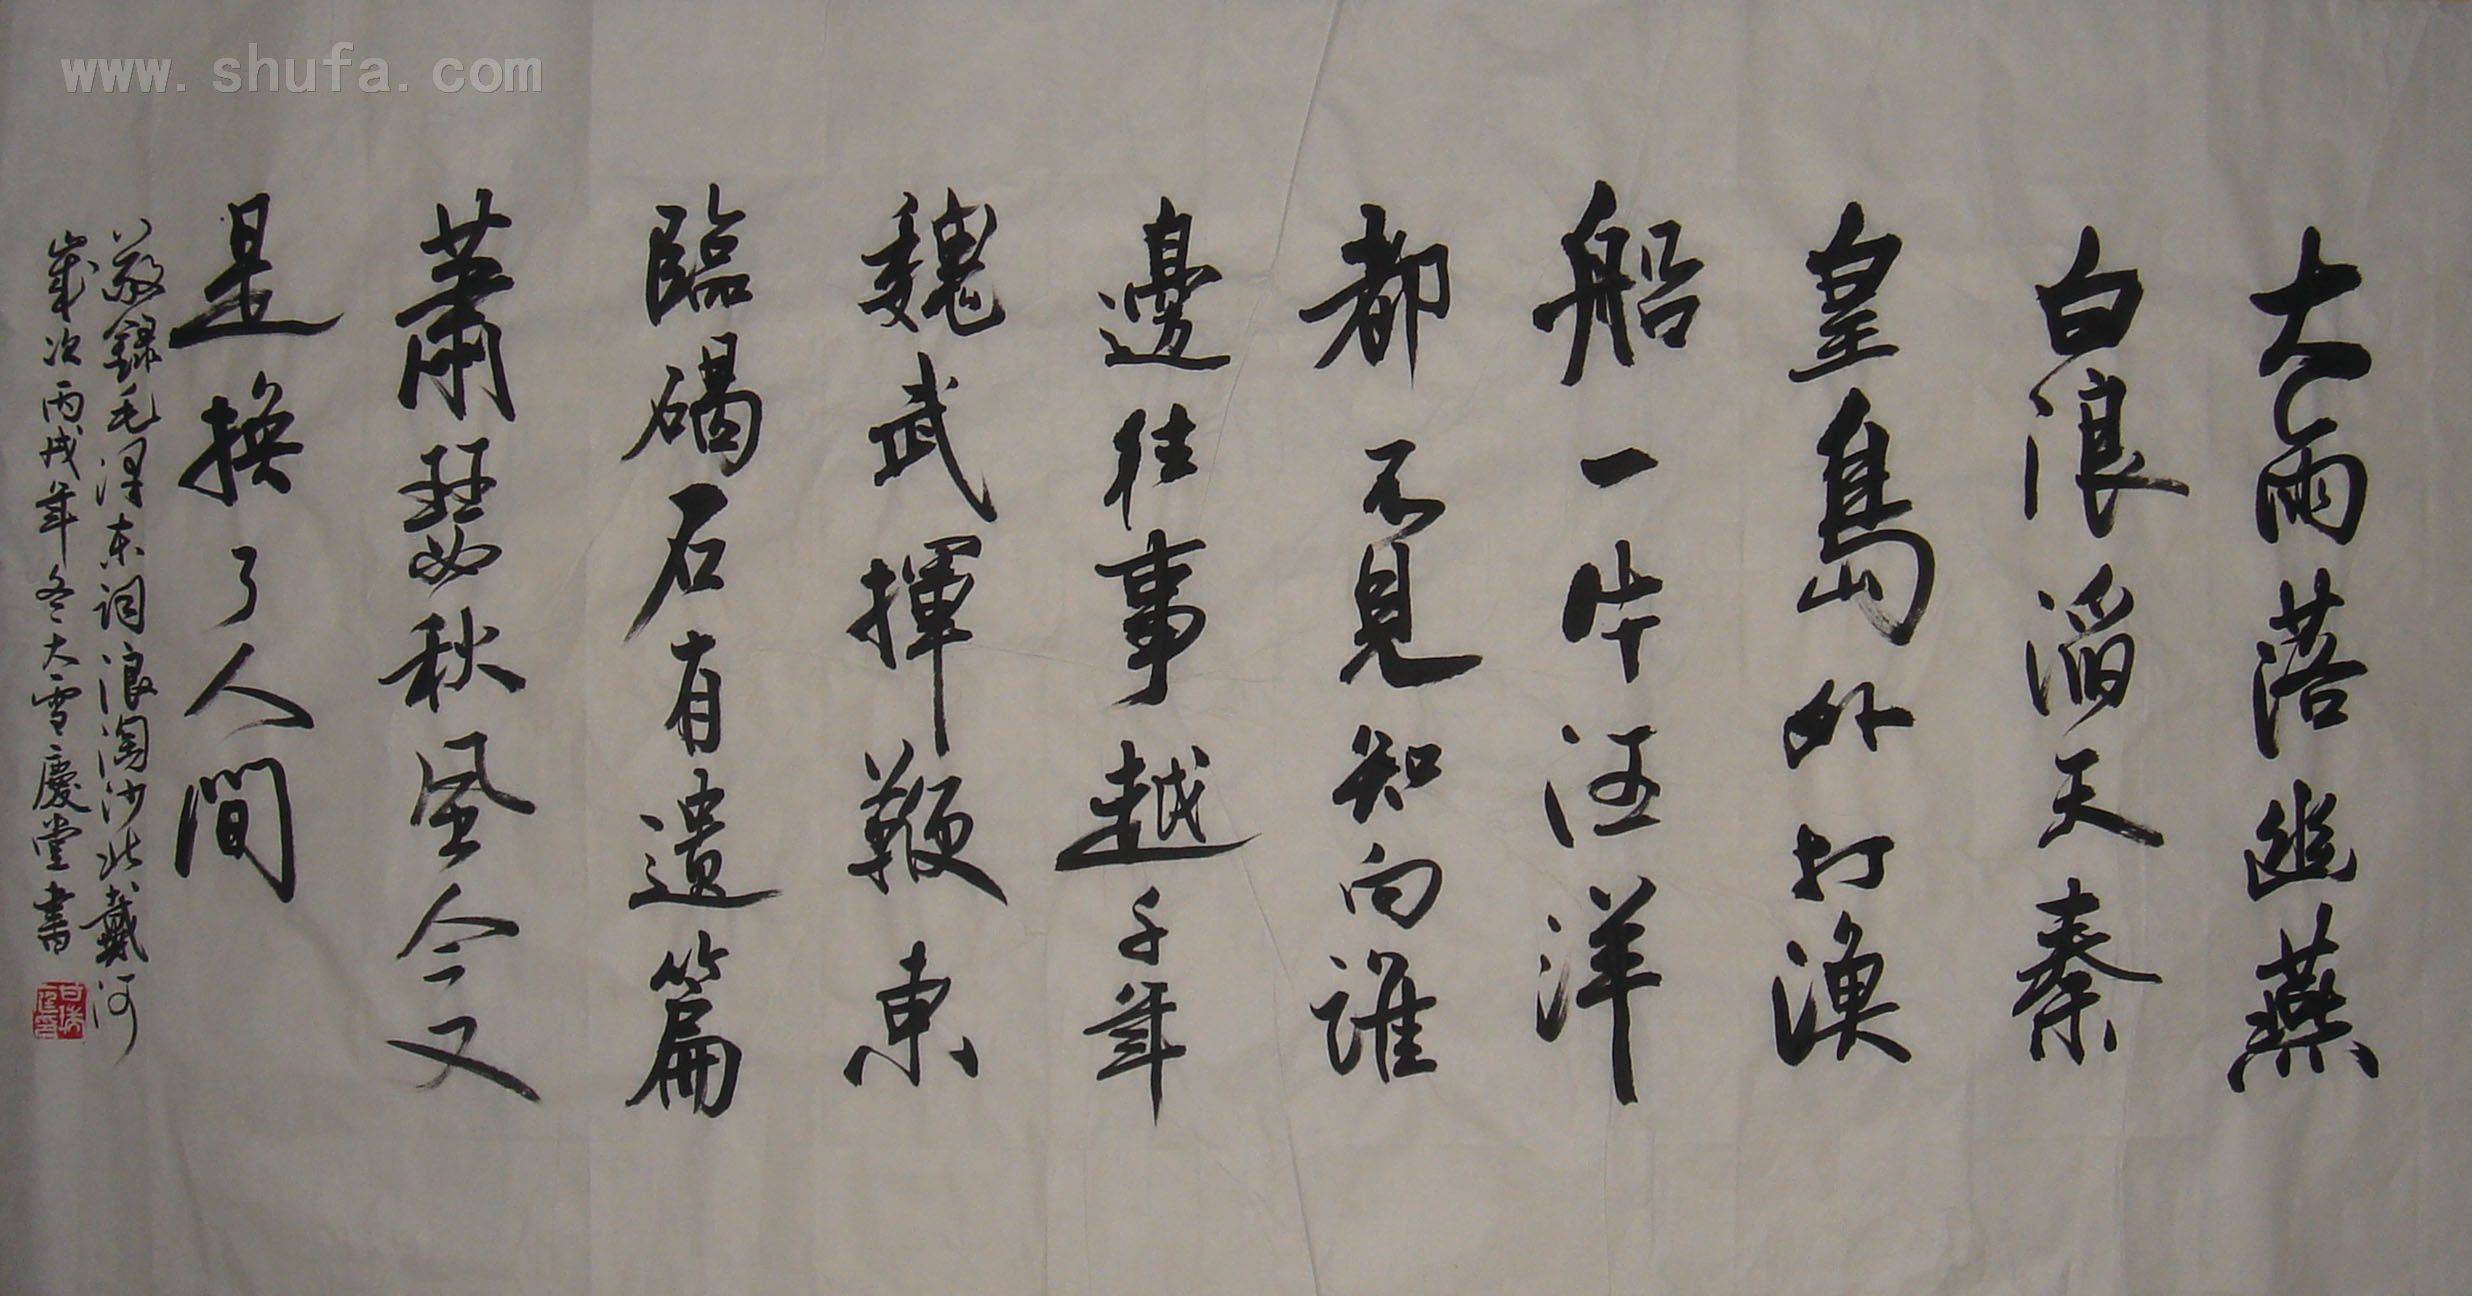 大雨落幽燕
白浪滔天秦
皇島外打漁
船一片汪洋
都不見知向誰
邊往事越千年
魏武揮鞭東
臨碣石有遺篇
蕭瑟秋風今又
是換了人間
敬錄毛澤東詞浪淘沙北戴河
歲次丙戌年冬大雪慶堂書
www.shufa.com